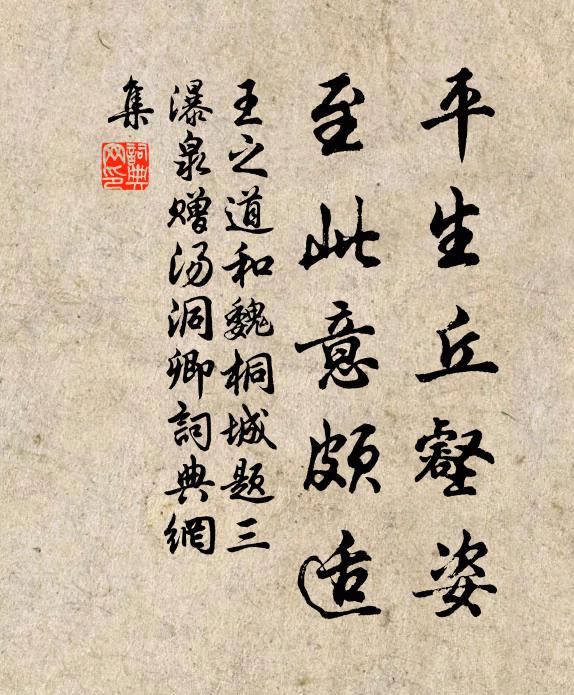 平生丘壑姿
至此意颇适
王之道和魏桐城题三
瀑泉赠汤洞卿詞典網
集
詞典网印